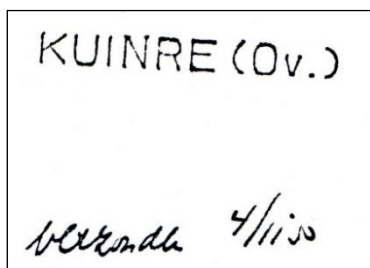 KUINRE (Ov.)
verzonden 4/11 50